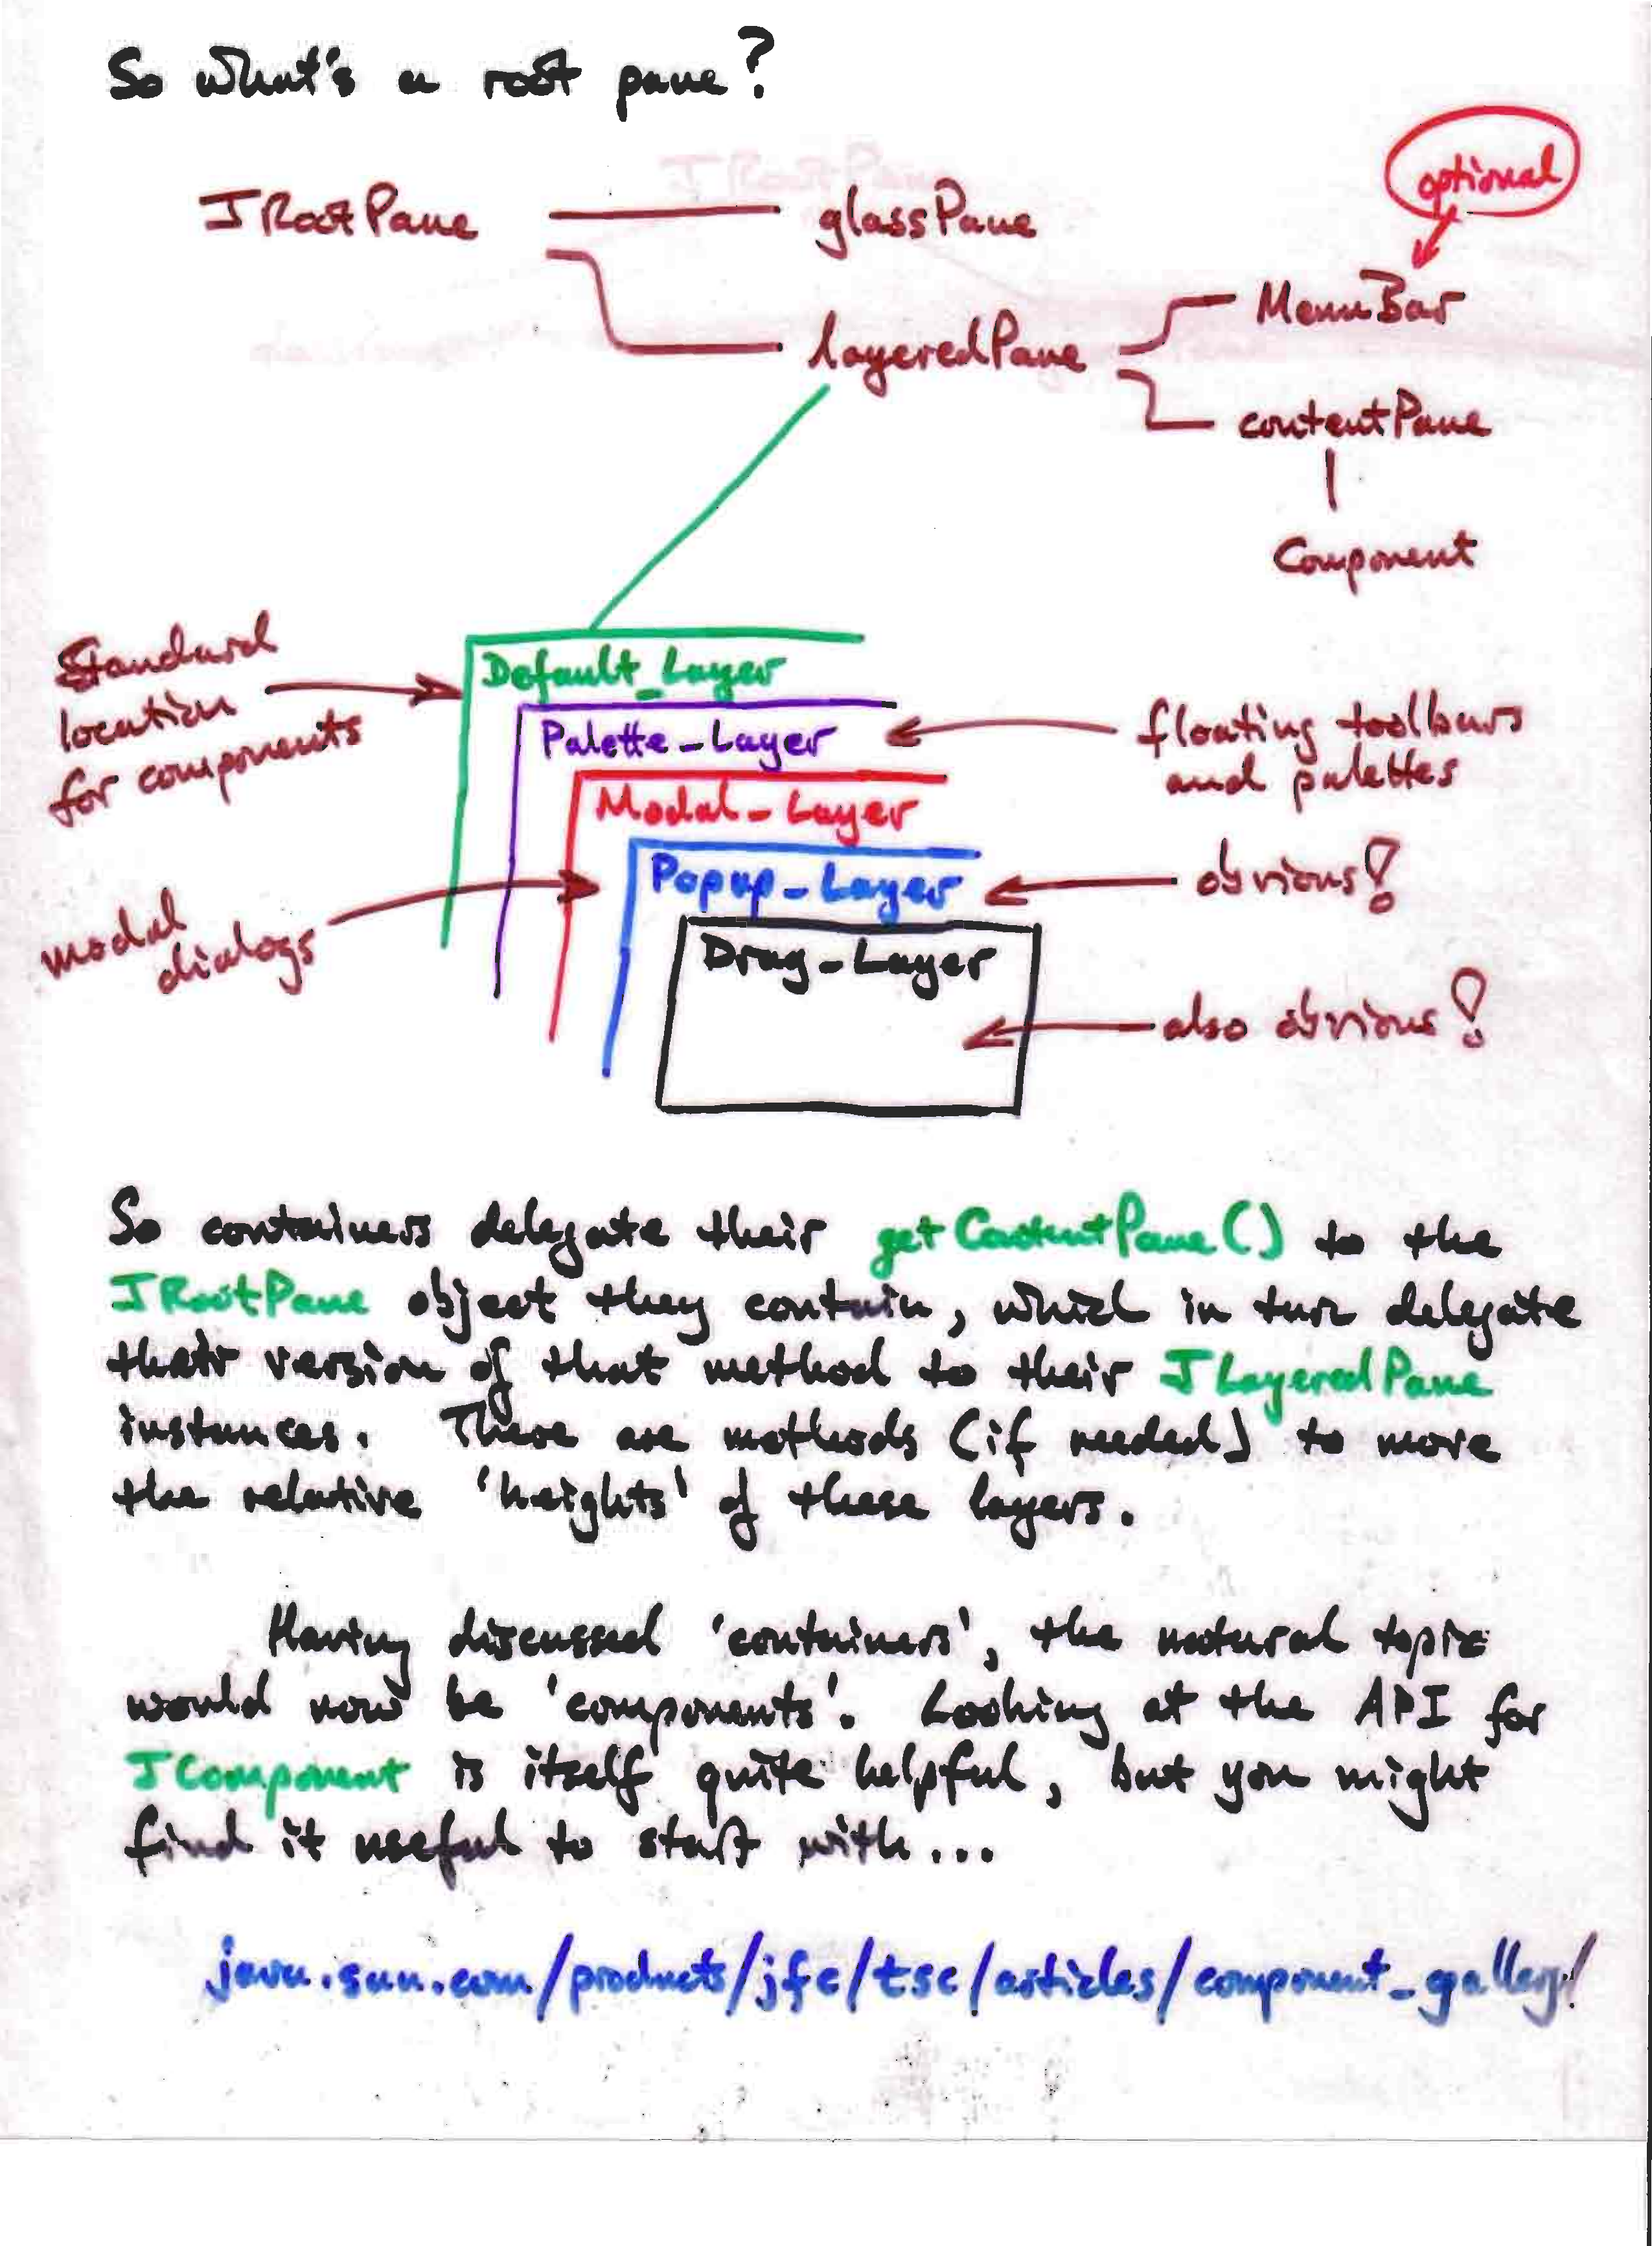 So what's a root pane?
optional
JRootPane glassPane
MenuBar
layeredPane
contentPane
Component
Standard
location
for components
Default_Layer
Palette_Layer
floating toolbars
and palettes
Modal_Layer
Popup_Layer
obvious!
modal
dialogs
Drag_Layer
also obvious!
So containers delegate their getContentPane() to the
JRootPane object they contain, which in turn delegate
their version of that method to their JLayeredPane
instances. There are methods (if needed) to move
the relative 'heights' of these layers.
Having discussed 'containers', the natural topic
would now be 'components'. Looking at the API for
JComponent is itself quite helpful, but you might
find it useful to start with...
java.sun.com/products/jfc/tsc/articles/component_gallery/